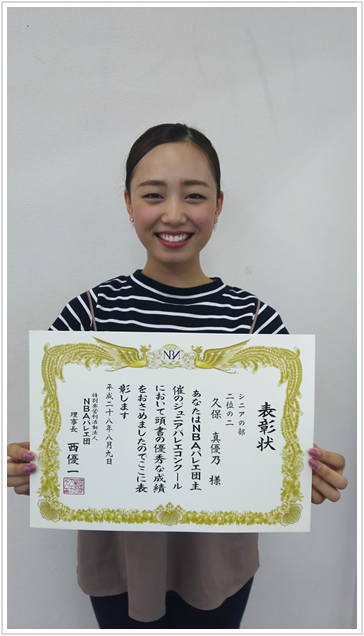 NBA
表彰状
シニアの部
二位の二
久保 真優乃 様
あなたはNBAバレエ団主
催のジュニアバレエコンクール
において頭書の優秀な成績
をおさめましたのでここに表
彰します
平成二十八年八月九日
特別非営利活動法人
NBAバレエ団
理事長 西 優一